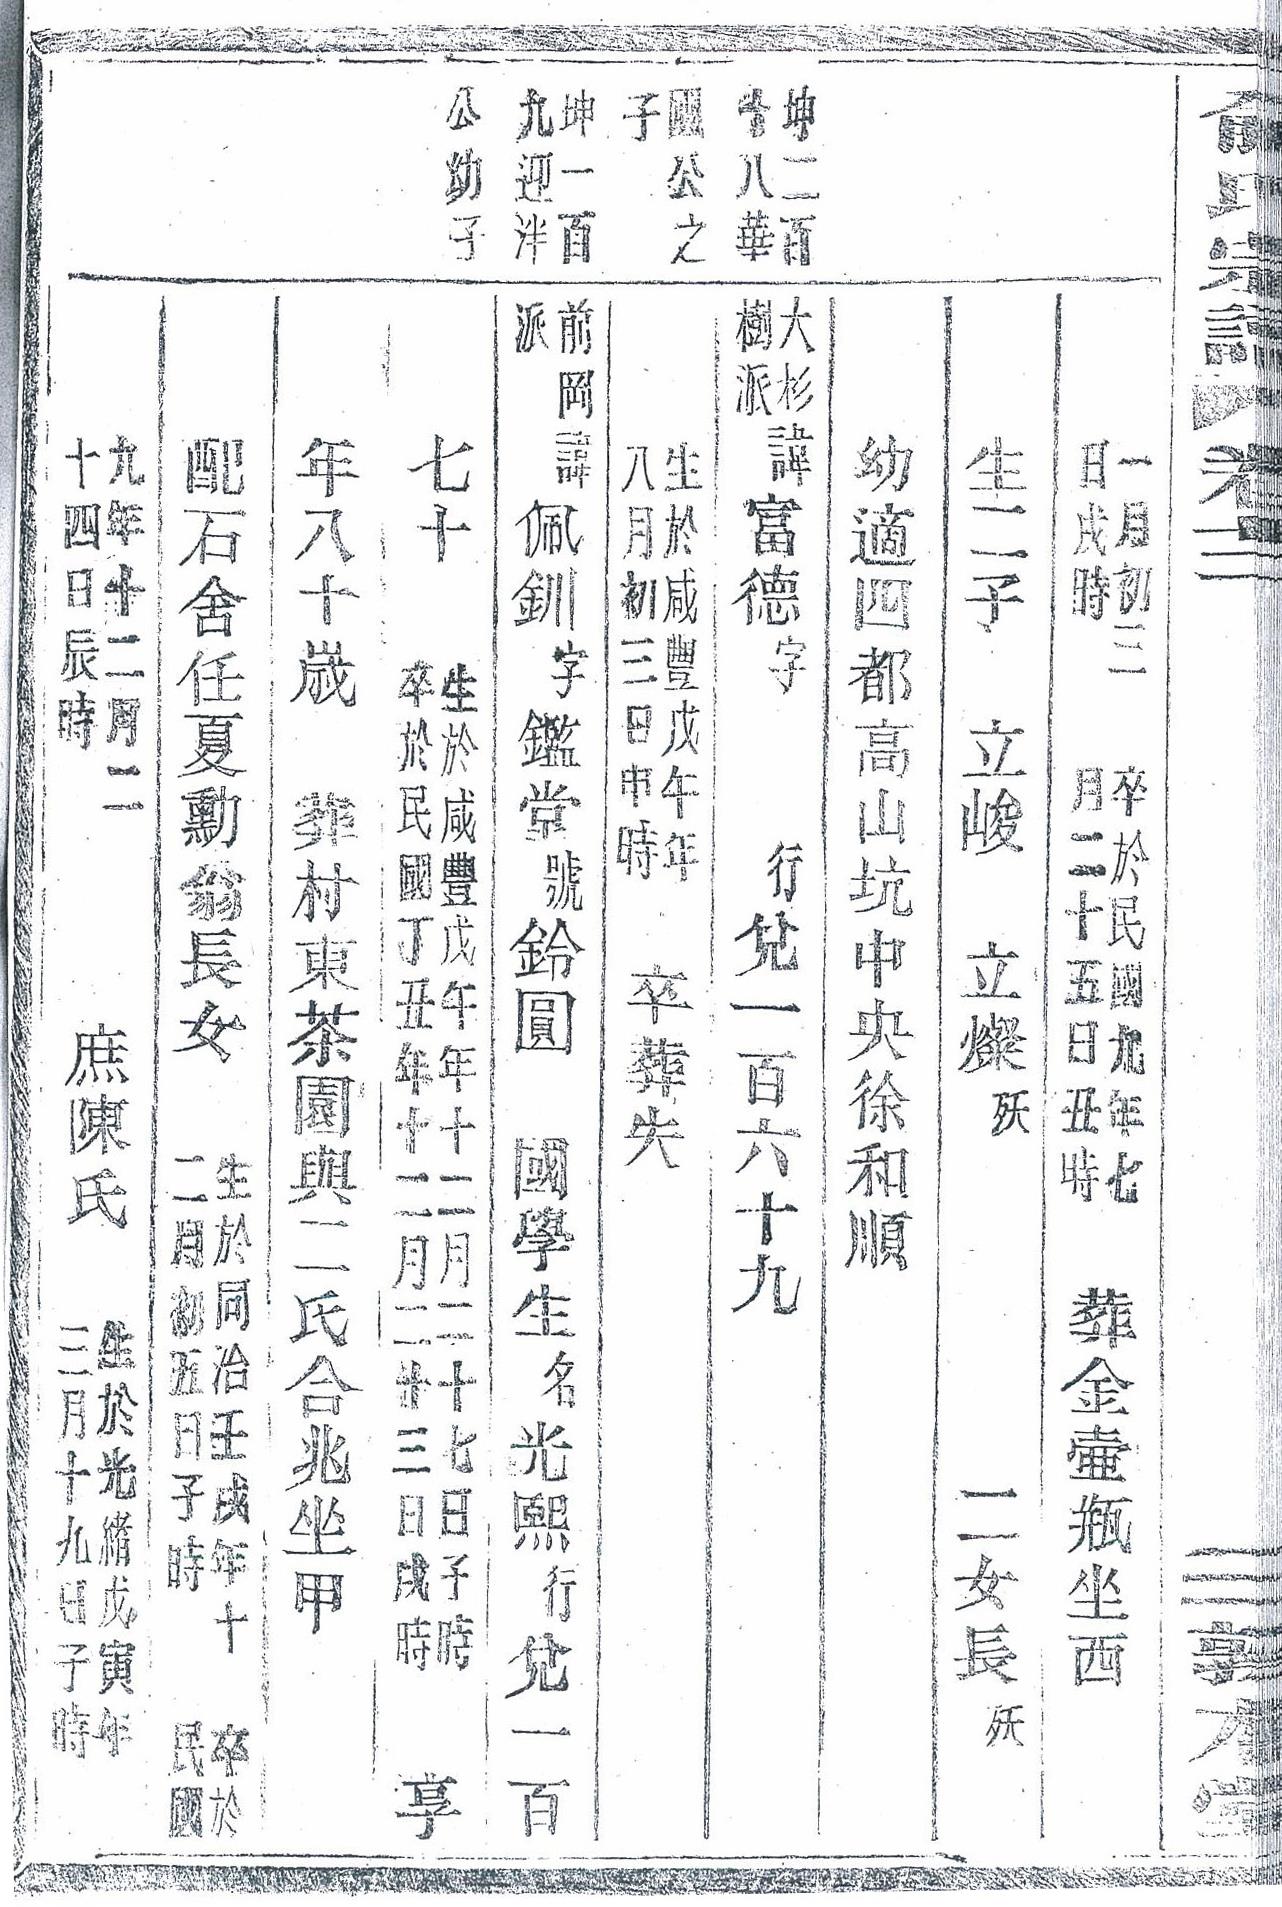 俞氏宗譜 卷二 敦本堂
一月初三日戌時 卒於民國九年七月二十五日丑時 葬金壺瓶坐西
生二子 立峻 立燦殀 二女長殀
幼適四都高山坑中央徐和順
坤二百廿八華國公之子
大杉樹派諱富德字 行兌一百六十九
生於咸豐戊午年八月初三日申時 卒葬失
坤一百九迎泮公幼子
前岡派諱佩釧字鑑堂號鈴圓 國學生名光熙行兌一百
七十 生於咸豐戊午年十二月二十七日子時卒於民國丁丑年十二月二十三日戌時 享
年八十歲 葬村東茶園與二氏合兆坐甲
配石舍任夏勳翁長女 生於同治壬戌年十二月初五日子時 卒於民國
九年十二月二十四日辰時 庶陳氏 生於光緒戊寅年三月十九日子時